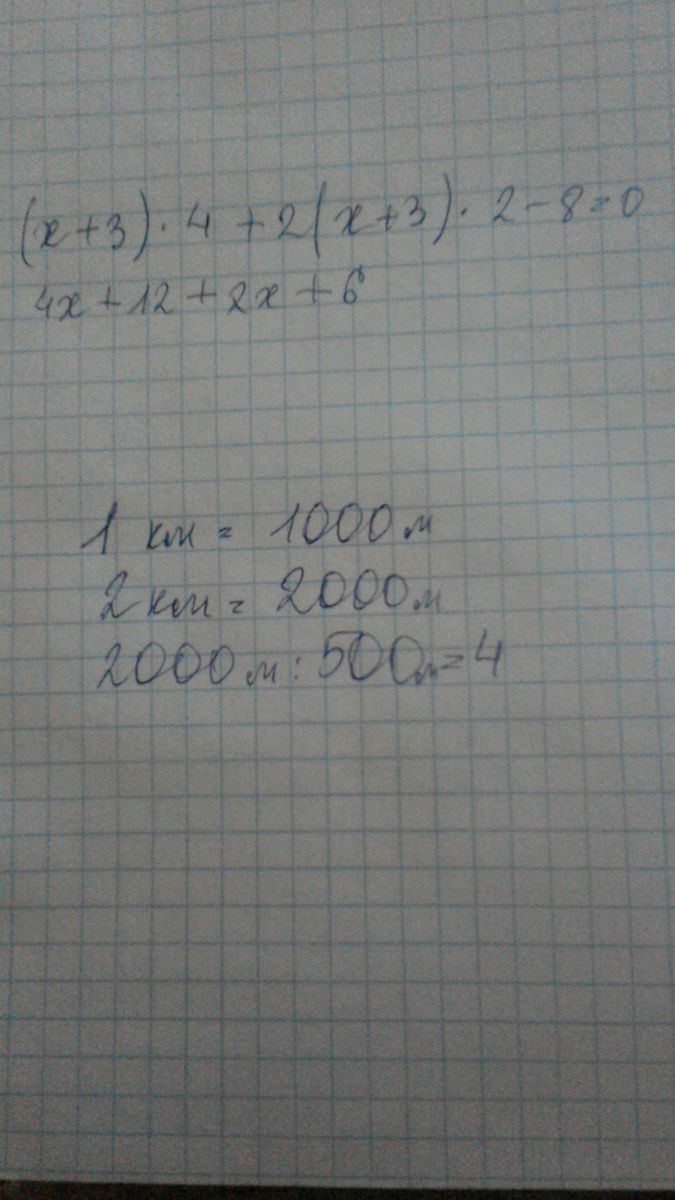 (x+3)·4+2(x+3)·2-8=0
4x+12+2x+6
1 км = 1000м
2км = 2000м
2000м:500м=4